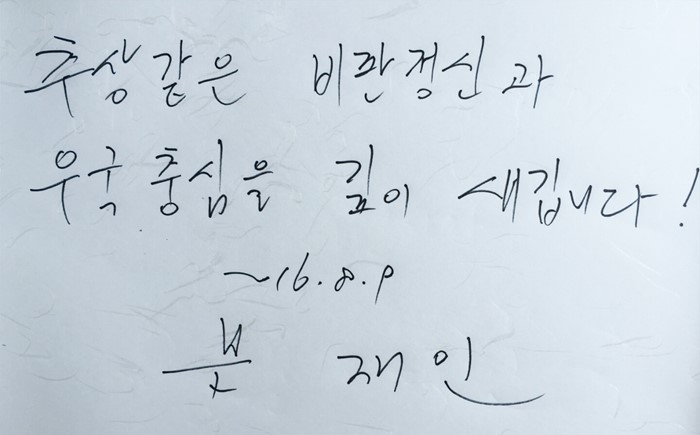 추상같은 비판정신과
우국충심을 깊이 새깁니다!
~16.8.9
문재인